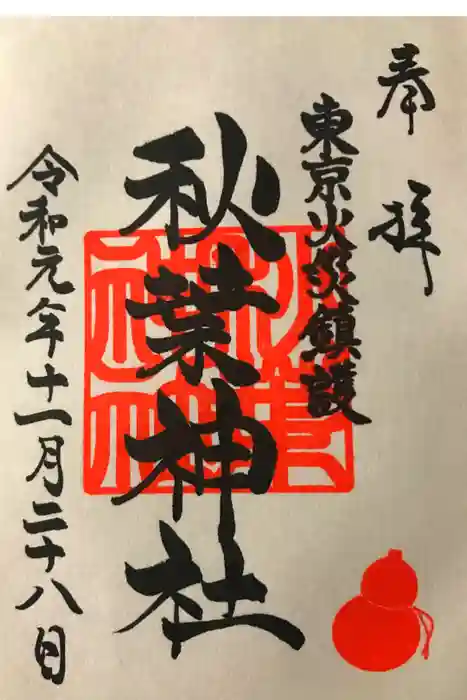 奉拝
東京火災鎮護
秋葉神社
令和元年十一月二十八日